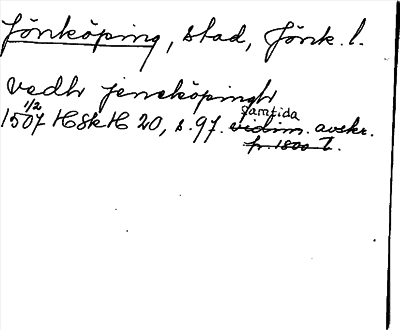 Jönköping, stad, Jönk. l.
vedh jeneköpingh
1507 1/2 HSkH 20, s. 97. samtida vidim. avskr.
fr. 1800-t.